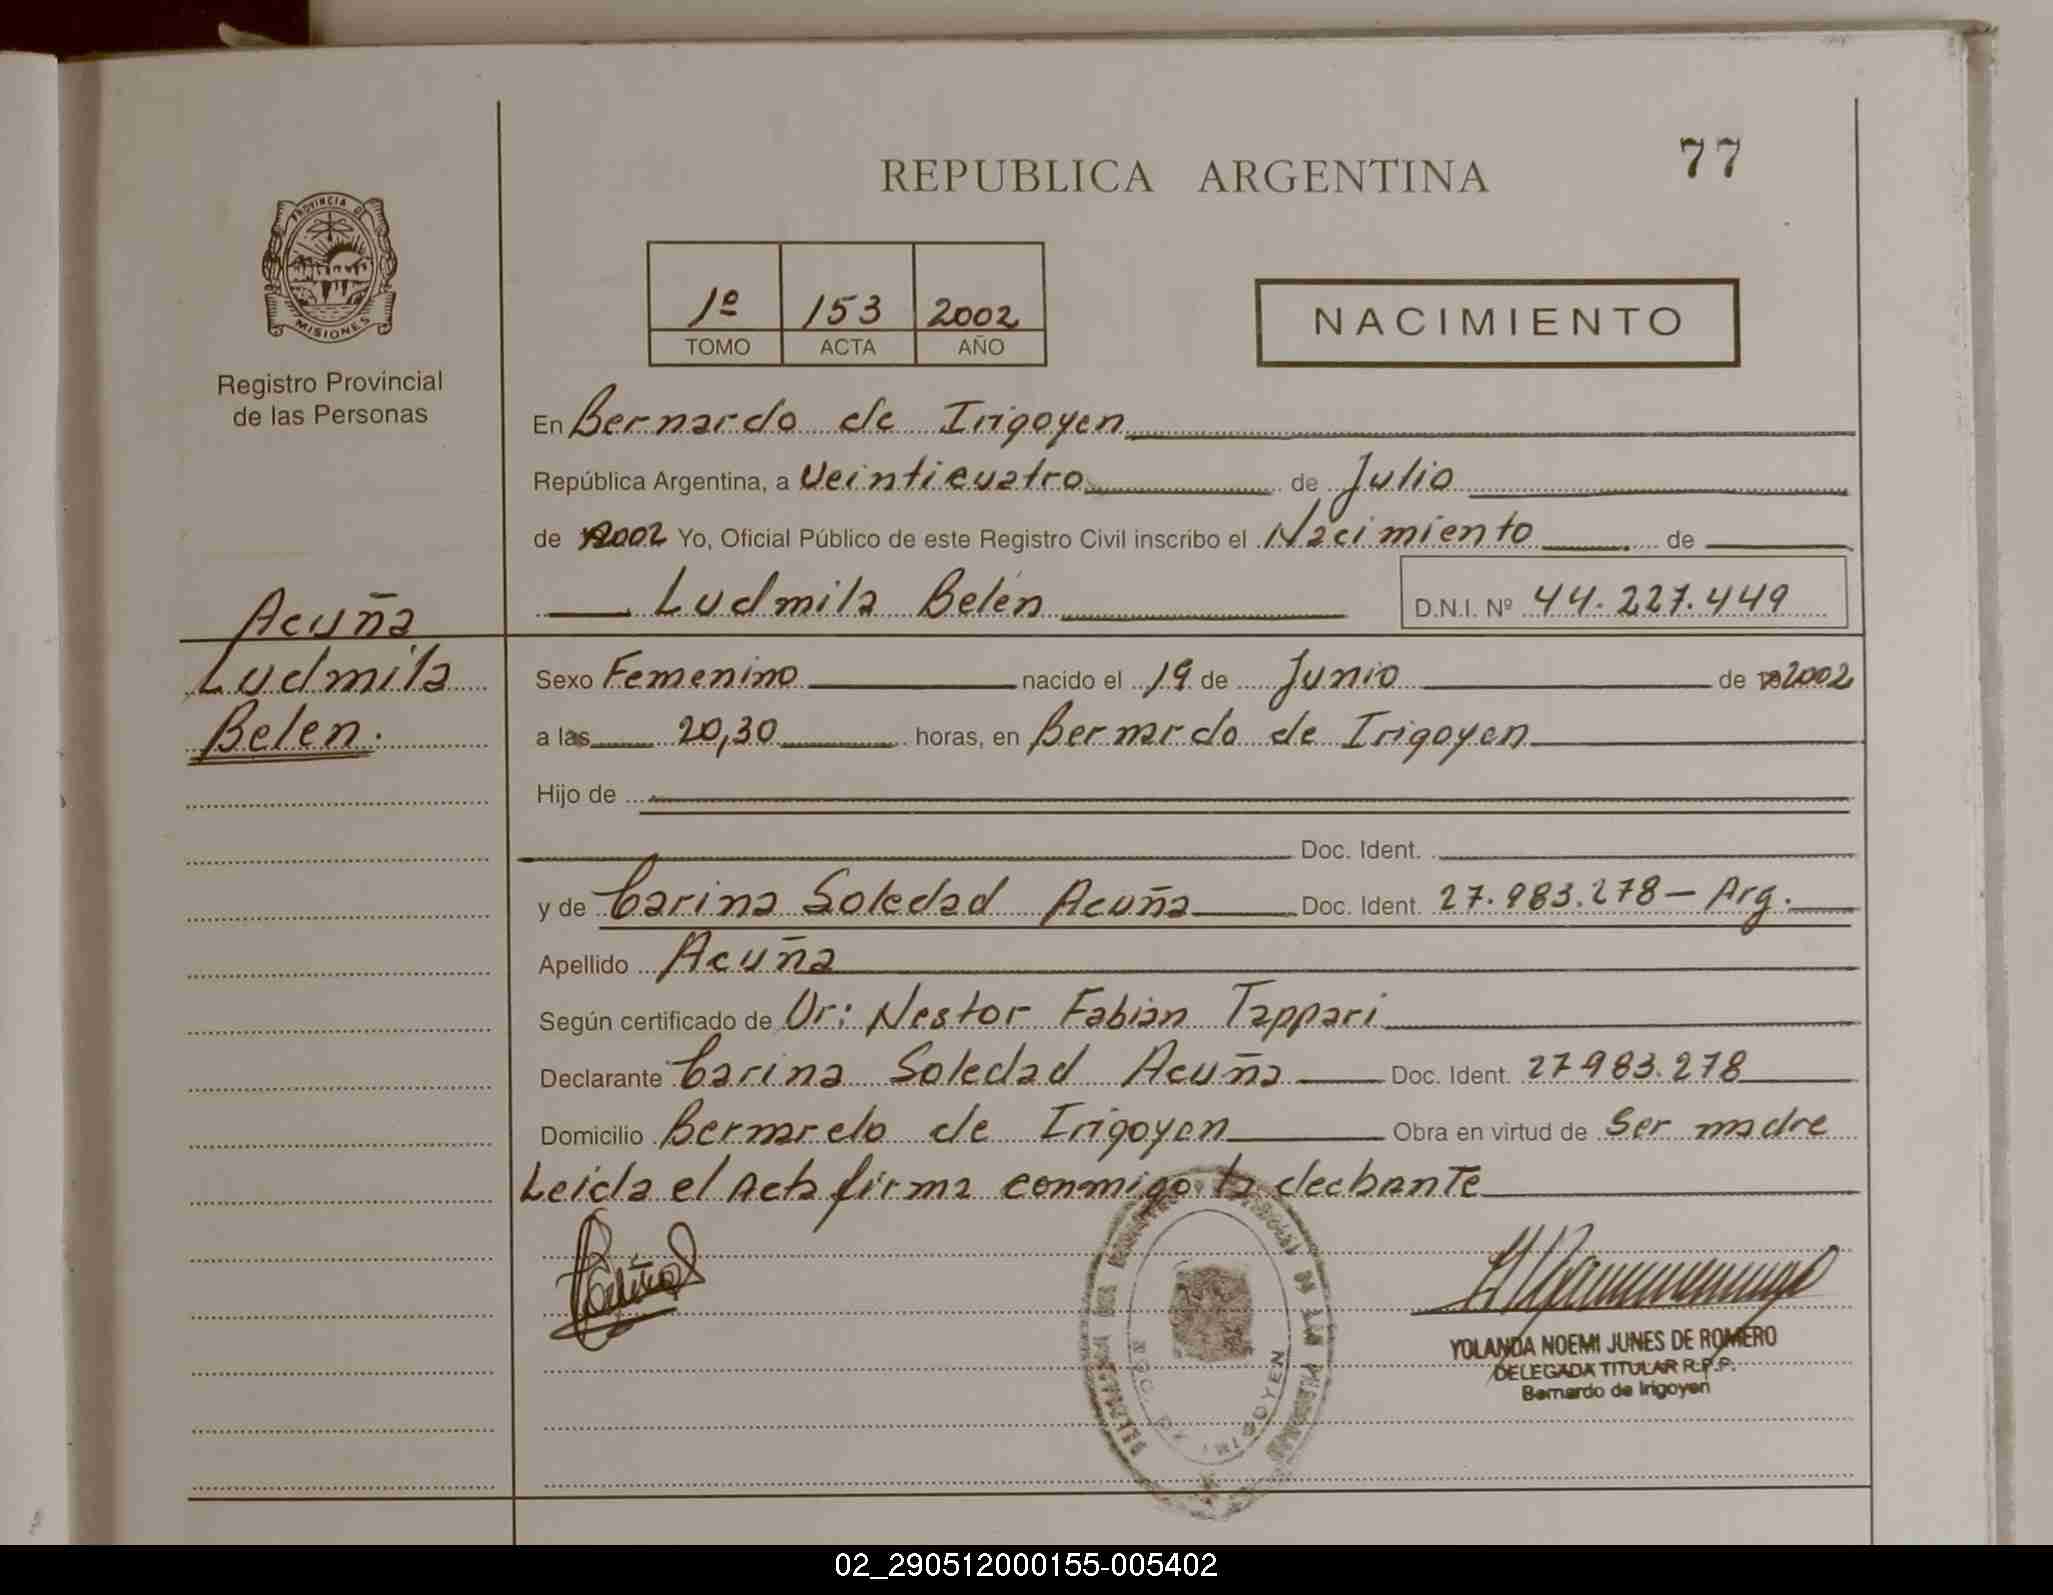 77
REPUBLICA ARGENTINA
PROVINCIA DE
MISIONES
Registro Provincial
de las Personas
1º 153 2002
TOMO ACTA AÑO
NACIMIENTO
En Bernardo de Irigoyen
República Argentina, a Veinticuatro de Julio
de 2002 Yo, Oficial Público de este Registro Civil inscribo el Nacimiento de
Ludmila Belén D.N.I. Nº 44.227.449
Acuña
Ludmila
Belen.
Sexo Femenino nacido el 19 de Junio de 2002
a las 20,30 horas, en Bernardo de Irigoyen
Hijo de
Doc. Ident.
y de Carina Soledad Acuña Doc. Ident. 27.983.278 - Arg.
Apellido Acuña
Según certificado de Dr: Nestor Fabian Tappari
Declarante Carina Soledad Acuña Doc. Ident. 27983.278
Domicilio Bernardo de Irigoyen Obra en virtud de Ser madre
Leída el Acta firma conmigo la declarante
IRIGOYEN
YOLANDA NOEMI JUNES DE ROMERO
DELEGADA TITULAR R.P.P.
Bernardo de Irigoyen
02_290512000155-005402